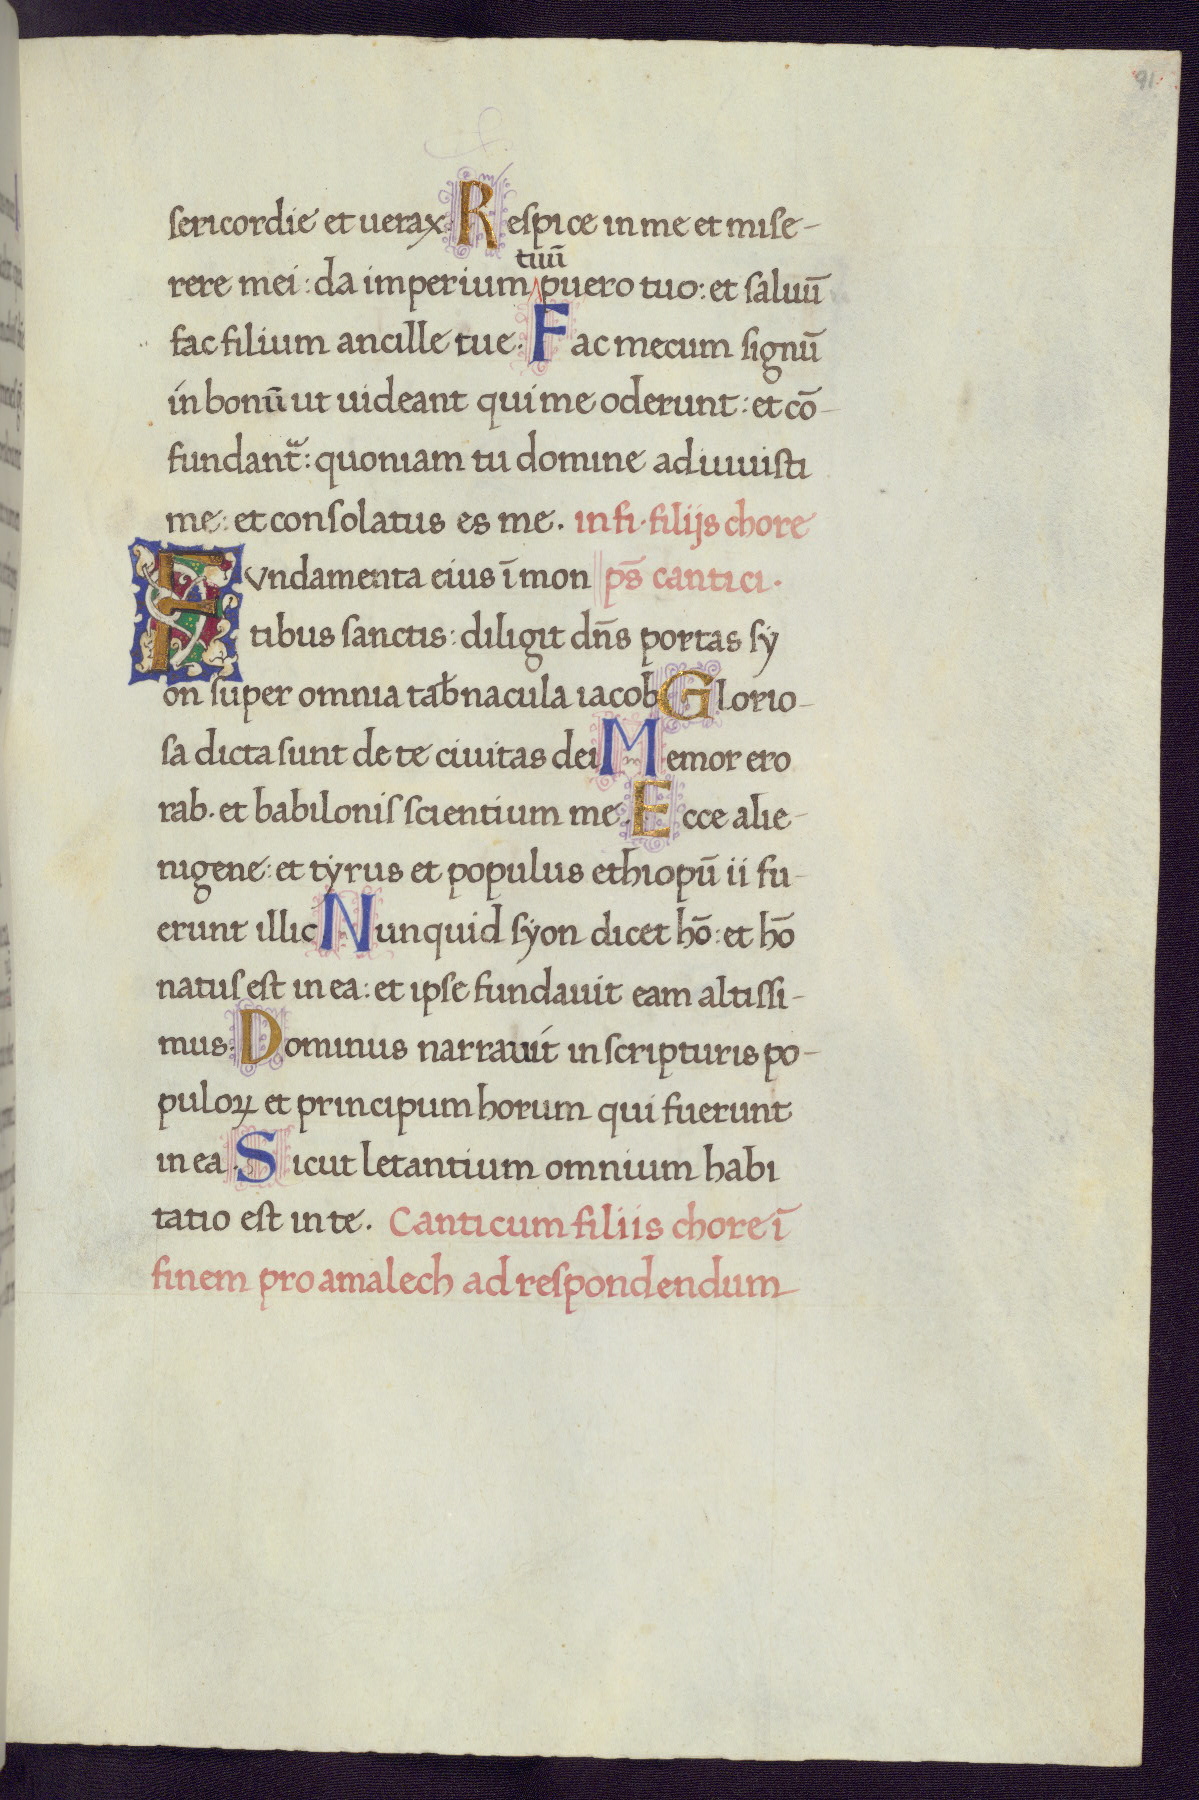 91
sericordie et uerax. Respice in me et mise-
tuū
rere mei: da imperium puero tuo: et saluū
fac filium ancille tue. Fac mecum signū
in bonū ut uideant qui me oderunt: et cō-
fundant᷑: quoniam tu domine adiuuisti
me: et consolatus es me. in fi. filijs chore
Fundamenta eius ī mon ps̄ cantici.
tibus sanctis: diligit dn̄s portas sẏ
on super omnia tab̄nacula iacob Glorio-
sa dicta sunt de te ciuitas dei Memor ero
rab. et babilonis scientium me. Ecce alie-
nigene: et tẏrus et populus ethiopū ii fu-
erunt illic Nunquid sẏon dicet hō: et hō
natus est in ea: et ipse fundauit eam altissi-
mus. Dominus narrauit in scripturis po-
puloꝝ et principum horum qui fuerunt
in ea. Sicut letantium omnium habi
tatio est in te. Canticum filiis chore ī
finem pro amalech ad respondendum